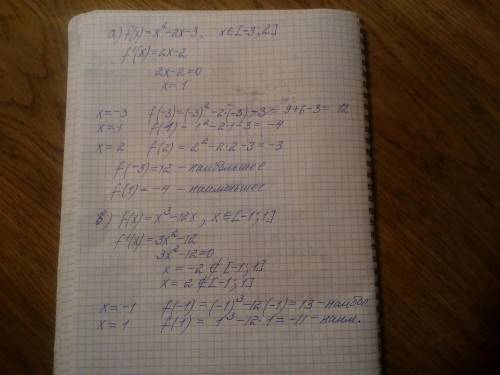 а) f(x) = x²-2x-3, x∈[-3;2]
f'(x) = 2x-2
2x-2=0
x=1
x=-3 f(-3)=(-3)²-2·(-3)-3= 9+6-3= 12
x=1 f(1)= 1²-2·1-3=-4
x=2 f(2)= 2²-2·2-3=-3
f(-3)=12 - наибольшое
f(1)=-4 - наименьшое
в) f(x)=x³-12x, x∈[-1;1]
f'(x)=3x²-12
3x²-12=0
x=-2∉[-1;1]
x=2∉[-1;1]
x=-1 f(-1)=(-1)³-12·(-1)=13-наибол
x=1 f(1)= 1³-12·1=-11-наим.